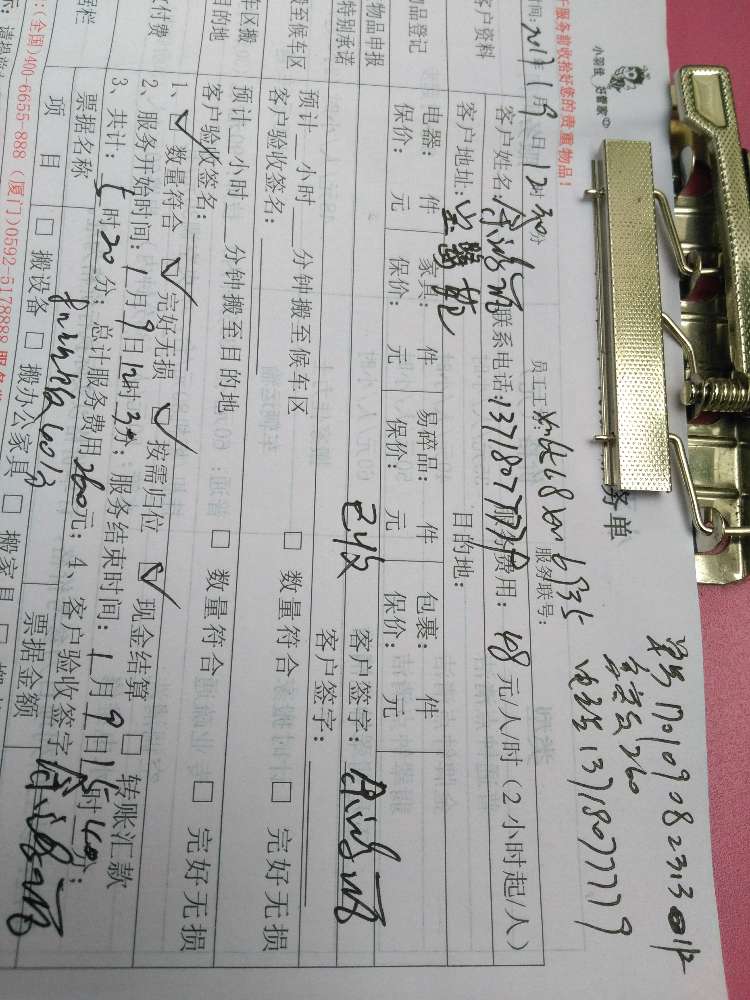 小羽佳 好管家
务单
单号170109082313
实收260
电话13718077779
于服务前收拾好您的贵重物品!
时间:2017年1月9日12时30分 员工工号: 服务联号:
客户资料 客户姓名: 联系电话:13718077779 服务费用:48元/人/时(2小时起/人)
客户地址: 目的地:
物品登记 电器: 件 家具: 件 易碎品: 件 包裹: 件
保价: 元 保价: 元 保价: 元 保价: 元
物品申报 已收 客户签字:
特别承诺 客户签字:
搬至候车区 预计 小时 分钟搬至候车区 □ 数量符合 □ 完好无损
客户验收签名:
车区搬目的地 预计 小时 分钟搬至目的地 □ 数量符合 □ 完好无损
客户验收签名:
付费 1、☑ 数量符合 ☑ 完好无损 ☑ 按需归位 ☑ 现金结算 □ 转账汇款
2、服务开始时间:1月9日12时3分;服务结束时间:1月9日15时40分;
3、共计: 时20分;总计服务费用260元;4、客户验收签字
据栏 票据名称 票据金额
项目 □ 搬设备 □ 搬办公家具 □ 搬家具 □
:(全国)400-6655-888 (厦门)0592-5178888